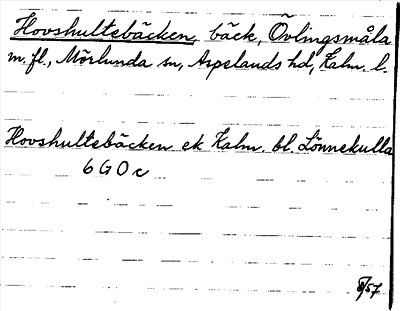 Hovshultebäcken, bäck, Övlingsmåla
m. fl., Mörlunda sn, Aspelands hd, Kalm. l.
Hovshultebäcken ek Kalm. bl. Lönnekulla
6 G 0 c
8/57